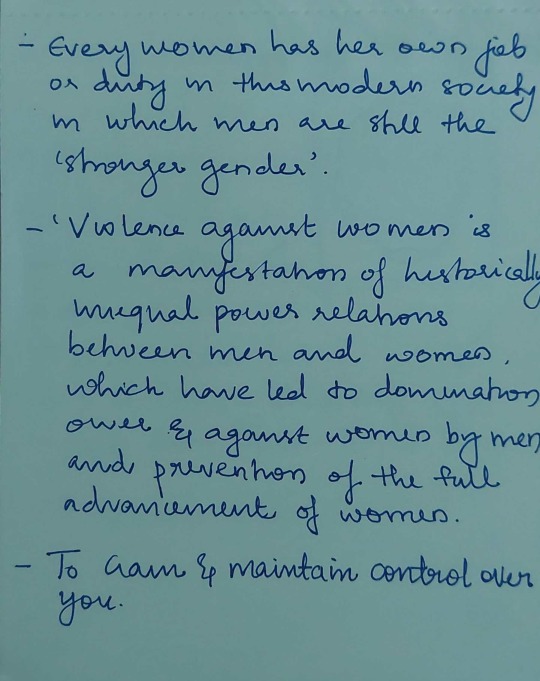 - Every women has her own job
or duty in this modern society
in which men are still the
'stronger gender'.
- 'Violence against women is
a manifestation of historically
unequal power relations
between men and women,
which have led to domination
over & against women by men
and prevention of the full
advancement of women.
- To Gain & maintain control over
you.